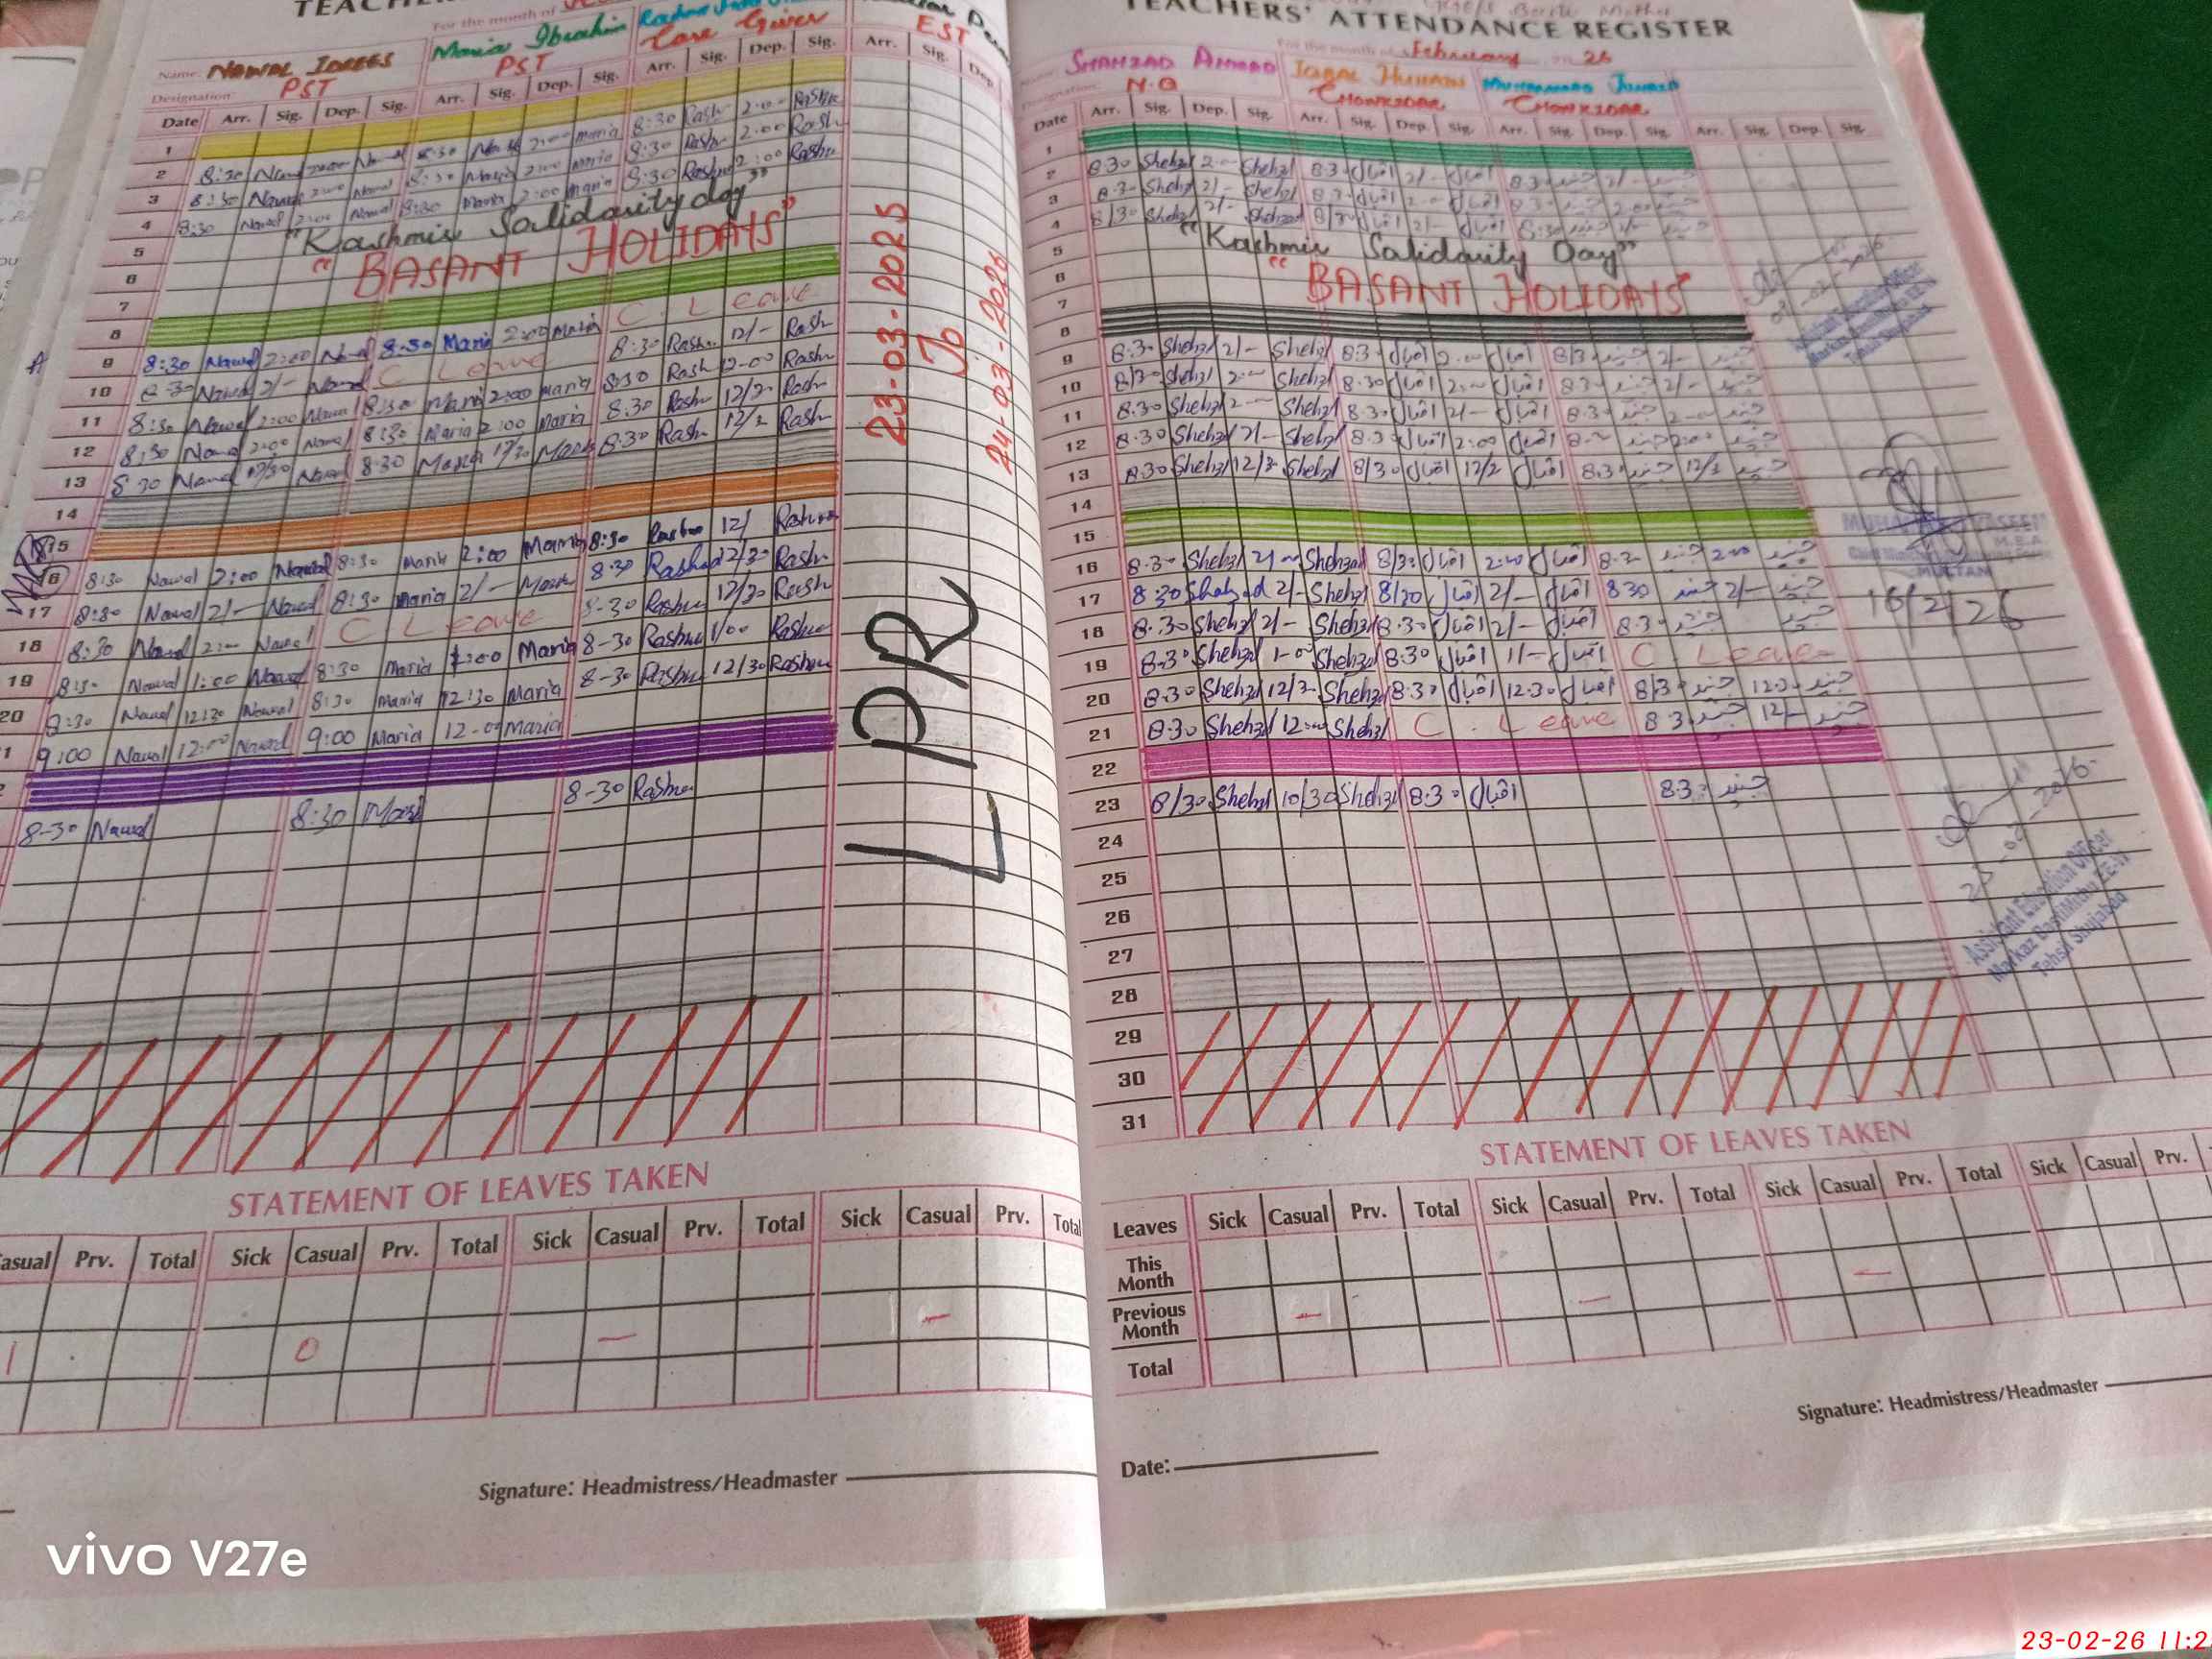 TEACHE
For the month of
Name: NAWAL IDREES Maria Ibrahim
Designation: PST PST Care Giver EST
Date Arr. Sig. Dep. Sig. Arr. Sig. Dep. Sig. Arr. Sig. Dep. Sig. Arr. Sig. Dep
1
2 8:30 Nawal 2:00 Nawal 8:30 2:00 Maria 8:30 Rash 2:00 Rashu
3 8:30 Nawal 2:00 Nawal 8:30 Maria 2:00 Maria 8:30 Rash 2:00 Rash
4 8:30 Nawal 2:00 Nawal 8:30 Maria 2:00 Maria 8:30 Rashu 2:00 Rashu
5 "Kashmir Salidarity day"
6 "BASANT HOLIDAYS"
7
8
9 8:30 Nawal 2:00 Nawal 8:30 Maria 2:00 Maria C. Leave
10 8:30 Nawal 2/- Nawal C Leave 8:30 Rashu 12/- Rash
11 8:30 Nawal 2:00 Nawal 8:30 Maria 2:00 Maria 8:30 Rash 12-00 Rash
12 8:30 Nawal 2:00 Nawal 8:30 Maria 2:00 Maria 8:30 Rashu 12/30 Rash
13 8:30 Nawal 12/30 Nawal 8:30 Maria 12/30 Maria 8:30 Rash 12/2 Rash
14
15
16 8:30 Nawal 2:00 Nawal 8:30 Maria 2:00 Maria 8:30 12/ Rashu
17 8:30 Nawal 2/- Nawal 8:30 Maria 2/- Maria 8:30 12/30 Rash
18 8:30 Nawal 2:00 Nawal C Leave 8-30 Rashu 12/30 Rash
19 8:30 Nawal 1:00 Nawal 8:30 Maria 1:00 Maria 8-30 Rashu 1/00 Rashu
20 8:30 Nawal 12:30 Nawal 8:30 Maria 12:30 Maria 8-30 Rashu 12/30 Rashu
1 9:00 Nawal 12:00 Nawal 9:00 Maria 12-00 Maria
8-30 Nawal 8:30 8-30 Rashu
23-03-2025
To
24-03-2026
LPR
STATEMENT OF LEAVES TAKEN
asual Prv. Total Sick Casual Prv. Total Sick Casual Prv. Total Sick Casual Prv. Total
1 0 — —
Signature: Headmistress/Headmaster
TEACHERS' ATTENDANCE REGISTER
For the month of February 26
SHAHZAD AHMAD IQBAL HUSSAIN MUHAMMAD JUNAID
Designation: N.Q CHOWKIDAR CHOWKIDAR
Date Arr. Sig. Dep. Sig. Arr. Sig. Dep. Sig. Arr. Sig. Dep. Sig. Arr. Sig. Dep. Sig.
1
2 8:30 Shehzd 2:00 Shehzd 8:30 اقبال 2/- اقبال 8:30 جنید 2/- جنید
3 8:30 Shehzd 2/- Shehzd 8:30 اقبال 2:00 اقبال 8:30 جنید 2:00 جنید
4 8/30 Shehzd 2/- Shehzad 8/30 اقبال 2/- اقبال 8:30 جنید 2/- جنید
5 "Kashmir Salidarity Day"
6 "BASANT HOLIDAYS"
7
8
9 8:30 Shehzd 2/- Shehzd 8:30 اقبال 2:00 اقبال 8/30 جنید 2/- جنید
10 8/30 Shehzd 2:00 Shehzd 8:30 اقبال 2:00 اقبال 8:30 جنید 2/- جنید
11 8:30 Shehzd 2:00 Shehzd 8:30 اقبال 2/- اقبال 8:30 جنید 2:00 جنید
12 8:30 Shehzd 2/- Shehzd 8:30 اقبال 2:00 اقبال 8:30 جنید 2:00 جنید
13 8:30 Shehzd 12/30 Shehzd 8/30 اقبال 12/2 اقبال 8:30 جنید 12/2 جنید
14
15
16 8:30 Shehzd 2/00 Shehzad 8/30 اقبال 2:00 اقبال 8:30 جنید 2:00 جنید
17 8:30 Shahzad 2/- Shehzd 8/30 اقبال 2/- اقبال 830 جنید 2/- جنید
18 8:30 Shehzd 2/- Shehzd 8:30 اقبال 2/- اقبال 8:30 جنید جنید
19 8:30 Shehzd 1-00 Shehzd 8:30 اقبال 1/- اقبال C. Leave
20 8:30 Shehzd 12/30 Shehzd 8:30 اقبال 12:30 اقبال 8/30 جنید 12:30 جنید
21 8:30 Shehzd 12:00 Shehzd C. Leave 8:30 جنید 12/- جنید
22
23 8/30 Shehzd 10/30 Shehzd 8:30 اقبال 8:30 جنید
24
25
26
27
28
29
30
31
MULTAN
16/2/26
Assistant Education Officer
Tehsil Shujabad
STATEMENT OF LEAVES TAKEN
Leaves Sick Casual Prv. Total Sick Casual Prv. Total Sick Casual Prv. Total Sick Casual Prv.
This Month —
Previous Month — —
Total
Signature: Headmistress/Headmaster
Date:
vivo V27e
23-02-26 11:2